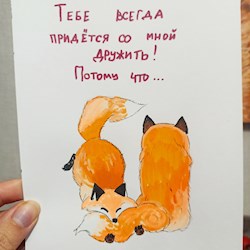 Тебе всегда
придётся со мной
дружить!
Потому что...